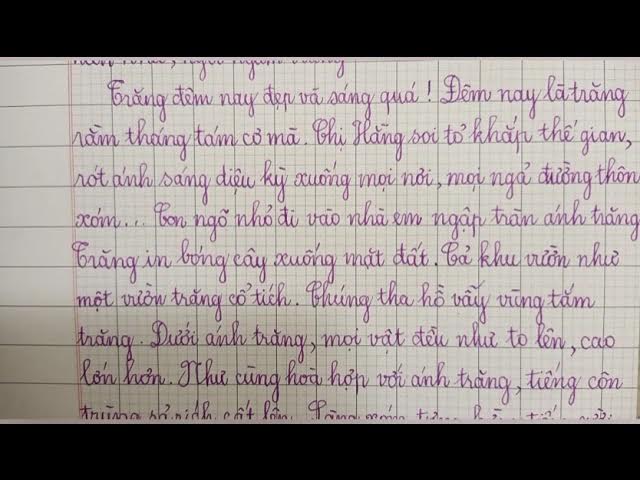 Trăng đêm nay đẹp và sáng quá! Đêm nay là trăng
rằm tháng tám cơ mà. Chị Hằng soi tỏ khắp thế gian,
rót ánh sáng diệu kỳ xuống mọi nơi, mọi ngả đường thôn
xóm... Con ngõ nhỏ đi vào nhà em ngập tràn ánh trăng
Trăng in bóng cây xuống mặt đất. Cả khu vườn như
một vườn trăng cổ tích. Chúng tha hồ vẫy vùng tắm
trăng. Dưới ánh trăng, mọi vật đều như to lên, cao
lớn hơn. Như cùng hoà hợp với ánh trăng, tiếng côn
trùng